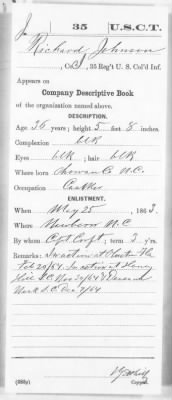 J 35 U.S.C.T.
Richard Johnson
, Co. , 35 Reg't U. S. Col'd Inf.
Appears on
Company Descriptive Book
of the organization named above.
DESCRIPTION.
Age 26 years; height 5 feet 8 inches.
Complexion blk
Eyes blk ; hair blk
Where born Chowan Co N.C.
Occupation
ENLISTMENT.
When May 25 , 1863.
Where Newbern N.C
By whom Capt Croft ; term 3 y'rs.
Remarks: In action at Fla
Feb 20/64. In action at Honey
Hill S.C. Nov 30/64 &
S.C. Dec /64
(383g) Copyist.